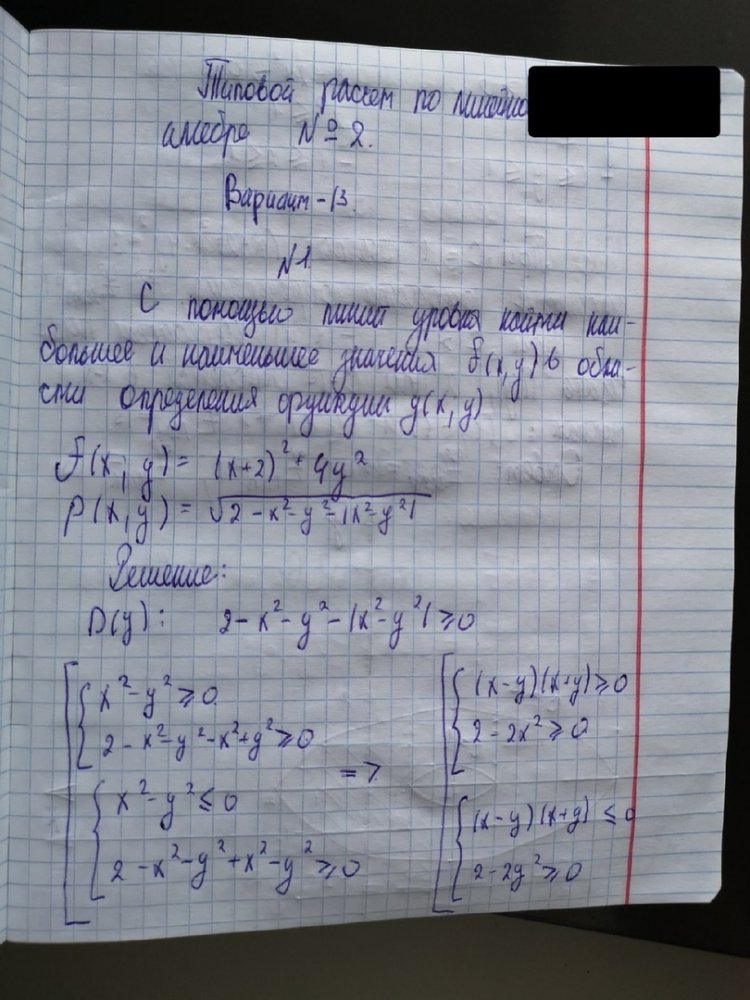 Типовой расчет по линейно
алгебре №2.
Вариант-13.
№1.
С помощью линий уровня найти наи-
большее и наименьшее значения f(x,y) в обла-
сти определения функции g(x;y)
f(x;y) = (x+2)² + 4y²
p(x,y) = √2-x²-y²-|x²-y²|
Решение:
D(y): 2-x²-y²-|x²-y²|≥0
x²-y²≥0 (x-y)(x+y)≥0
2-x²-y²-x²+y²≥0 2-2x²≥0
=>
x²-y²≤0 (x-y)(x+y)≤0
2-x²-y²+x²-y²≥0 2-2y²≥0